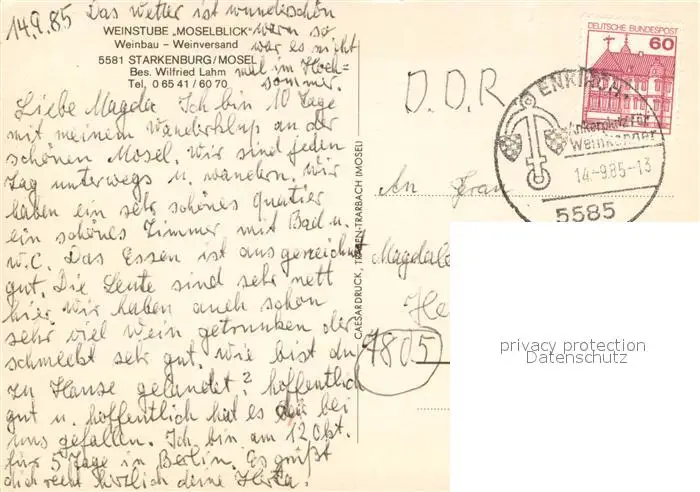 14.9.85 Das Wetter ist wunderschön
warm so
war es nicht
mal im Hoch=
sommer.
WEINSTUBE „MOSELBLICK"
Weinbau – Weinversand
5581 STARKENBURG/MOSEL
Bes. Wilfried Lahm
Tel. 0 65 41 / 60 70
Liebe Magda Ich bin 10 Tage
mit meinem Wanderklup an der
schönen Mosel. Wir sind jeden
Tag unterwegs u. wandern. Wir
haben ein sehr schönes Quatier
ein schönes Zimmer mit Bad u.
W.C. Das Essen ist ausgezeichnet
gut. Die Leute sind sehr nett
hier. Wir haben auch schon
sehr viel Wein getrunken der
schmeckt sehr gut. Wie bist du
zu Hause gelandet? hoffentlich
gut u. hoffentlich hat es bei
uns gefallen. Ich bin am 12 Okt.
für 5 Tage in Berlin. Es grüßt
dich recht herzlich deine Herta.
CAESARDRUCK, TRABEN-TRARBACH (MOSEL)
D.D.R
An Frau
Magdale
He
4805
DEUTSCHE BUNDESPOST
60
ENKIRCH
Ankerplatz für
Weinkenner
14.-9.85-13
5585
privacy protection
Datenschutz